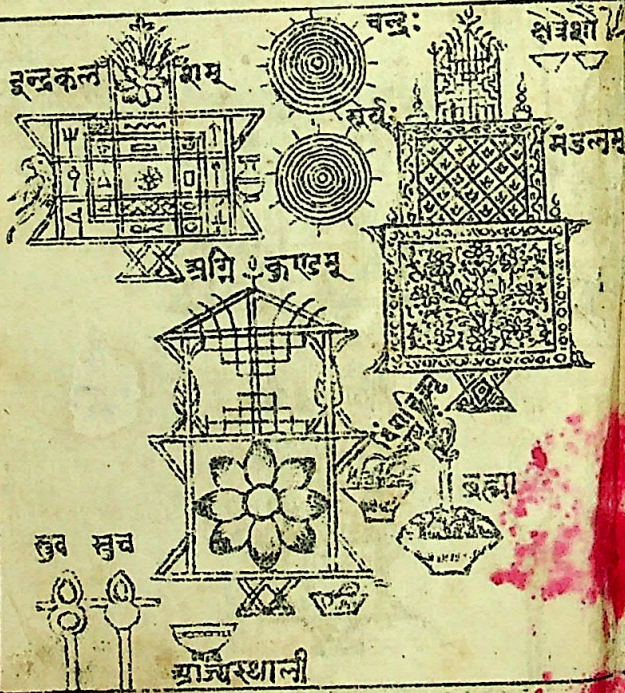 चन्द्रः
इन्द्रकल शम्
सूर्यः
मंडलम्
अग्नि कुण्डम्
ब्रह्मा
स्रुव स्रुच
आज्यस्थाली